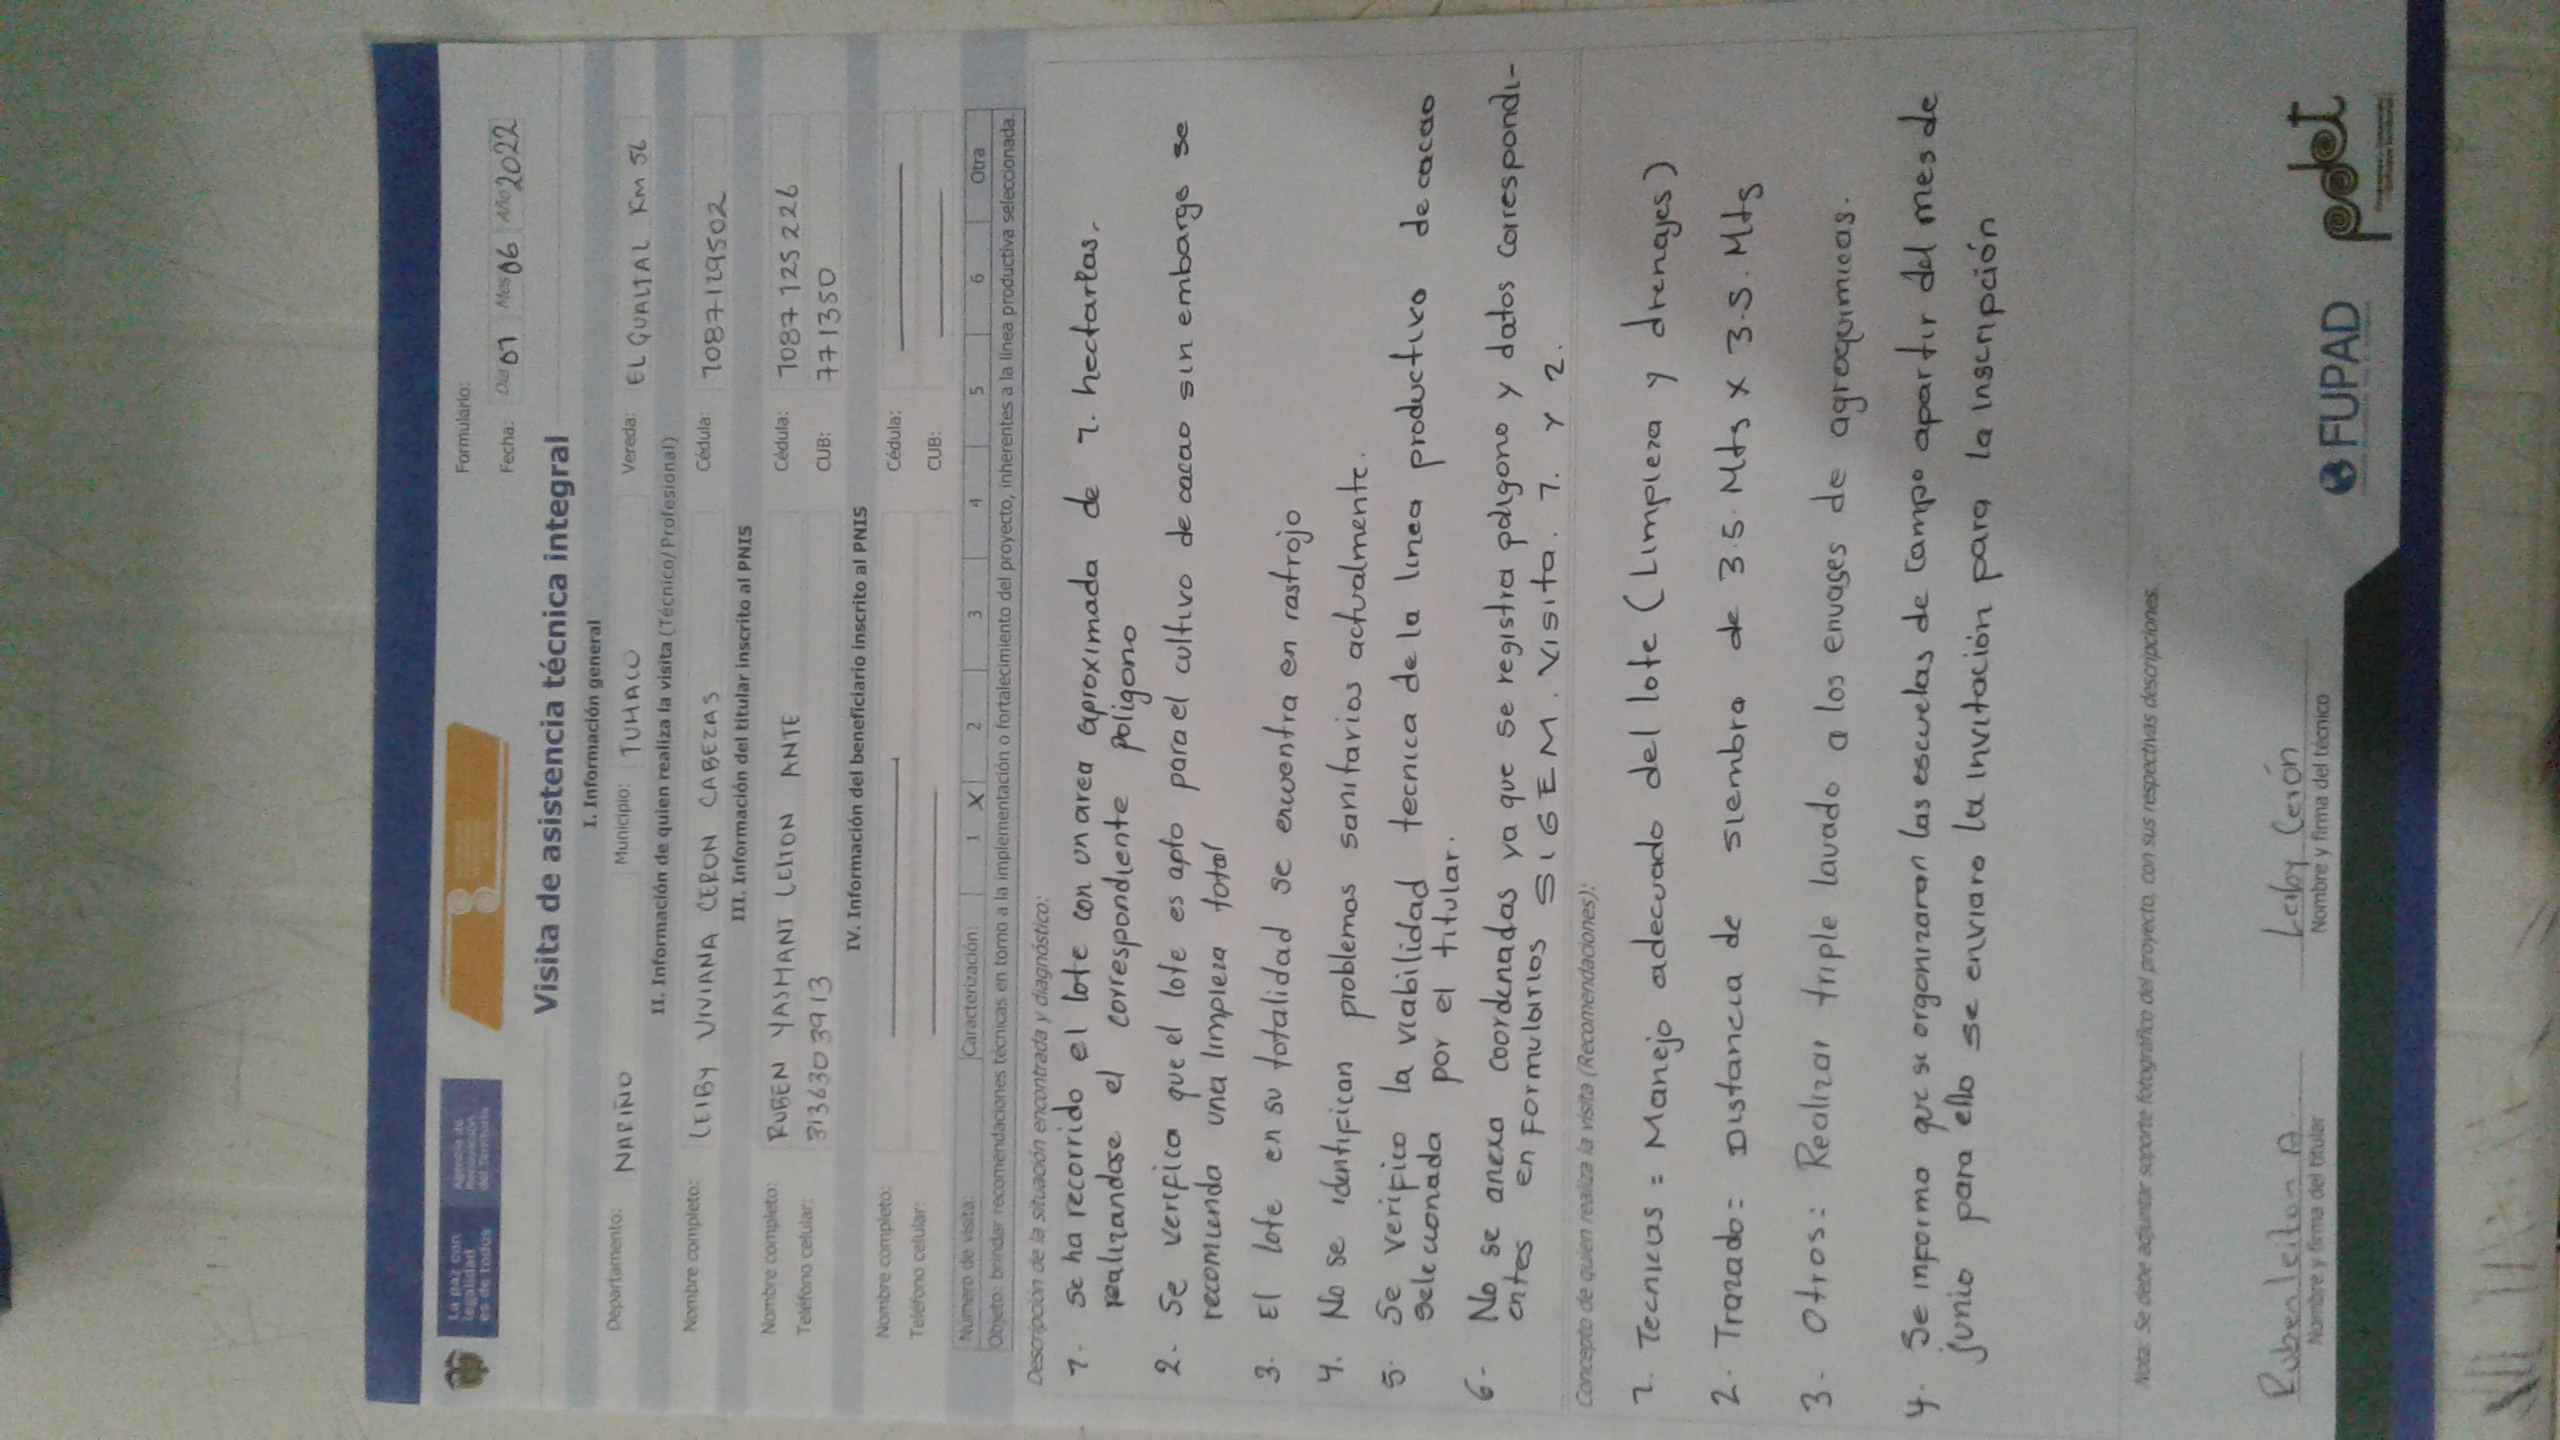 La paz con
legalidad
es de todos
Agencia de
Renovación
del Territorio
Formulario:
Fecha: Día 01 Mes 06 Año 2022
Visita de asistencia técnica integral
I. Información general
Departamento: NARIÑO Municipio: TUMACO Vereda: EL GUALTAL KM 56
II. Información de quien realiza la visita (Técnico/Profesional)
Nombre completo: LEIBY VIVIANA CERON CABEZAS Cédula: 1087129502
III. Información del titular inscrito al PNIS
Nombre completo: RUBEN YASMANI LEITON ANTE Cédula: 1087125226
Teléfono celular: 3136303913 CUB: 771350
IV. Información del beneficiario inscrito al PNIS
Nombre completo: Cédula:
Teléfono celular: CUB:
Número de visita: Caracterización: 1 X 2 3 4 5 6 Otra
Objeto: brindar recomendaciones técnicas en torno a la implementación o fortalecimiento del proyecto, inherentes a la línea productiva seleccionada.
Descripción de la situación encontrada y diagnóstico:
1- se ha recorrido el lote con un area aproximada de 1. hectareas.
realizandose el correspondiente poligono
2- Se verifica que el lote es apto para el cultivo de cacao sin embargo se
recomienda una limpieza total
3- El lote en su totalidad se encuentra en rastrojo
4. No se identifican problemas sanitarios actualmente.
5. Se verifico la viabilidad tecnica de la linea productiva de cacao
seleccionada por el titular.
6- No se anexa coordenadas ya que se registra poligono y datos correspondi-
entes en Formularios SIGEM. Visita. 1. Y 2.
Concepto de quien realiza la visita (Recomendaciones):
1. Tecnicos = Manejo adecuado del lote (Limpieza y drenajes)
2. Trazado: Distancia de siembra de 3.5. Mts x 3.5. Mts
3- Otros: Realizar triple lavado a los envases de agroquimicos.
4. Se informo que se organizaran las escuelas de campo apartir del mes de
Junio para ello se enviara la invitación para la inscripción
Nota: Se debe adjuntar soporte fotográfico del proyecto, con sus respectivas descripciones.
Ruben leiton A.
Nombre y firma del titular
Leiby Cerón
Nombre y firma del técnico
FUPAD
pdet